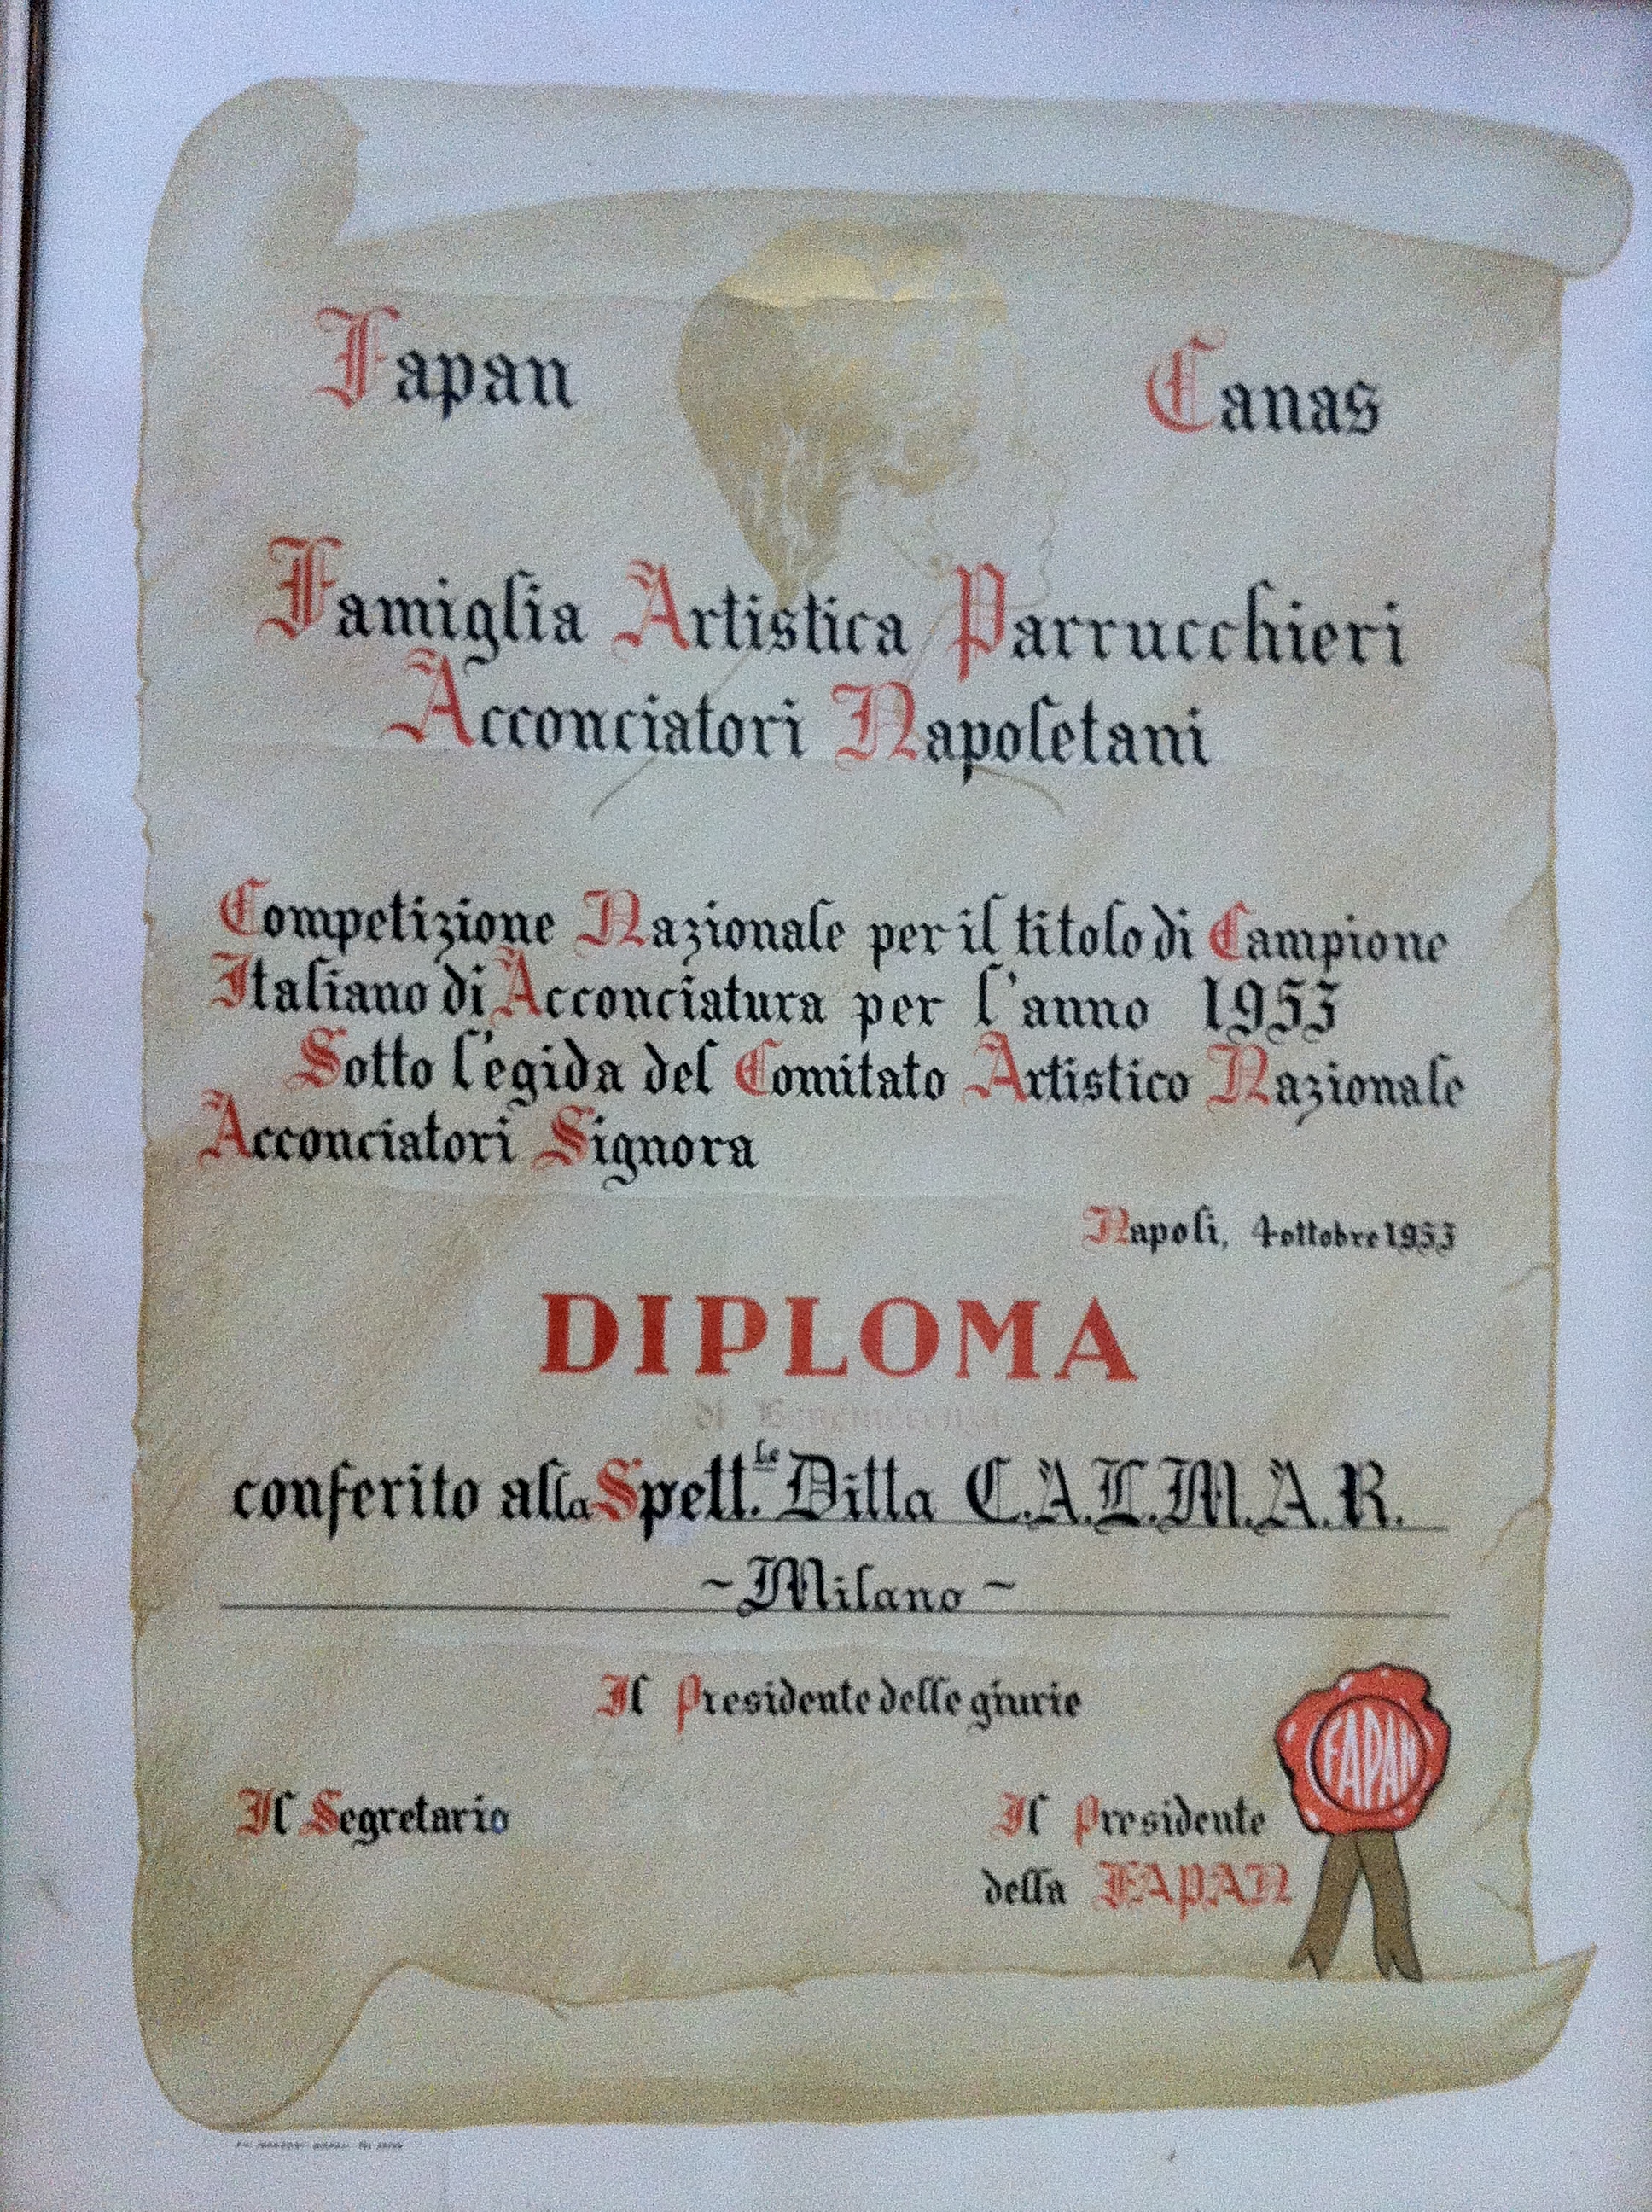 Fapan Canas
Famiglia Artistica Parrucchieri
Acconciatori Napoletani
Competizione Nazionale per il titolo di Campione
Italiano di Acconciatura per l'anno 1953
Sotto l'egida del Comitato Artistico Nazionale
Acconciatori Signora
Napoli, 4 ottobre 1953
DIPLOMA
di Benemerenza
conferito alla Spett.le Ditta C.A.L.M.A.R.
~ Milano ~
Il Presidente delle giurie
FAPAN
Il Segretario
Il Presidente
della FAPAN